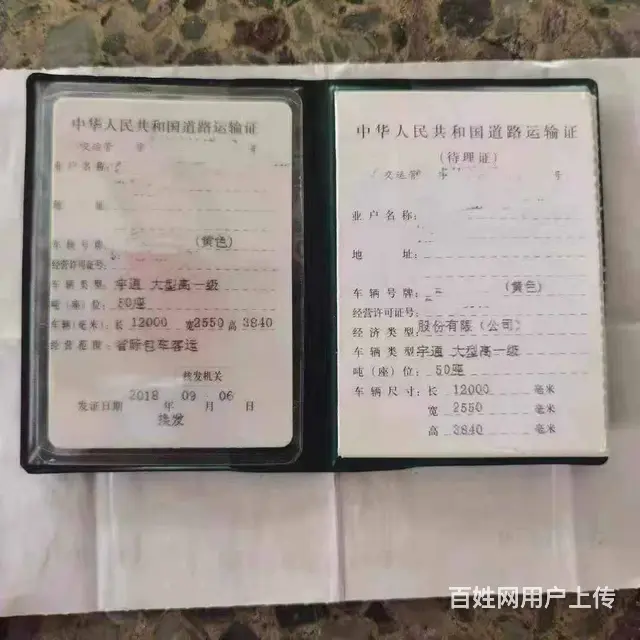 中华人民共和国道路运输证
交运管 字 号
业户名称:
地 址
车辆号牌 (黄色)
经营许可证号:
车辆类型: 宇通 大型高一级
吨(座)位: 50座
车辆(毫米) 长 12000 宽 2550 高 3840
经营范围: 省际包车客运
核发机关
发证日期 2018 年 09 月 06 日
续发
中华人民共和国道路运输证
(待理证)
交运管 字 号
业户名称:
地 址:
车辆号牌: (黄色)
经营许可证号:
经济类型: 股份有限(公司)
车辆类型 宇通 大型高一级
吨(座)位: 50座
车辆尺寸: 长 12000 毫米
宽 2550 毫米
高 3840 毫米
百姓网用户上传